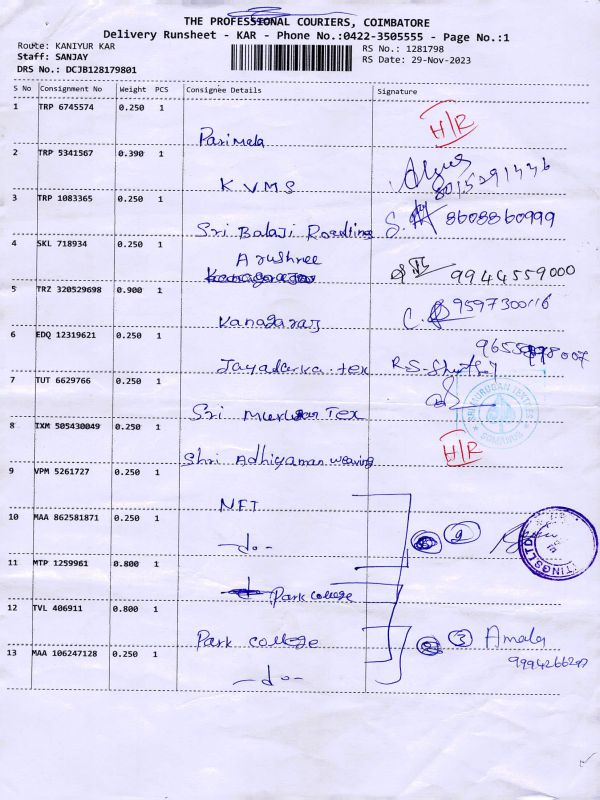 THE PROFESSIONAL COURIERS, COIMBATORE
Delivery Runsheet - KAR - Phone No.:0422-3505555 - Page No.:1
Route: KANIYUR KAR
RS No.: 1281798
Staff: SANJAY
RS Date: 29-Nov-2023
DRS No.: DCJB128179801
S No Consignment No Weight PCS Consignee Details Signature
1 TRP 6745574 0.250 1
H/R
Parimala
2 TRP 5341567 0.390 1
K.V.M.S
3 TRP 1083365 0.250 1
8608860999
Sri Balaji
4 SKL 718934 0.250 1
Arushree
9944559000
5 TRZ 320529698 0.900 1
9597300116
Kanagaraj
6 EDQ 12319621 0.250 1
tex R.S-
7 TUT 6629766 0.250 1
Sri Murugan Tex
8 IXM 505430049 0.250 1
Shri Adhiyaman weaving H/R
9 VPM 5261727 0.250 1
10 MAA 862581871 0.250 1
-do-
11 MTP 1259961 0.800 1
Park college
12 TVL 406911 0.800 1
Park college 3 Amala
13 MAA 106247128 0.250 1
-do-